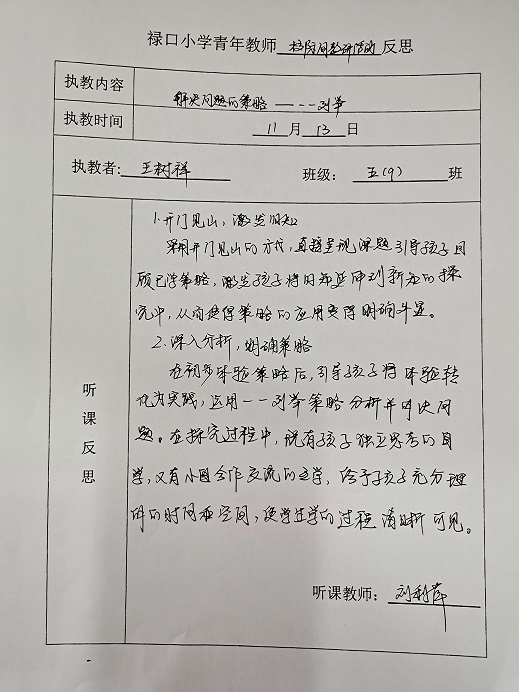 禄口小学青年教师 校际同整研活动 反思
执教内容
解决问题的策略 ——一一列举
执教时间
11 月 13 日
执教者: 王树祥 班级: 五(9) 班
听课反思
1.开门见山,激发旧知
采用开门见山的方式,直接呈现课题引导孩子回
顾已学策略,激发孩子将旧知延伸到新知的探
究中,从而使得策略的应用变得明确斗显。
2.深入分析,明确策略
在初步体验策略后,引导孩子将体验转
化为实践,运用一一列举策略分析并解决问
题。在探究过程中,既有孩子独立思考的自
学,又有小组合作交流的互学,给予孩子充分理
解的时间和空间,使学生学的过程清晰可见。
听课教师: 刘利萍